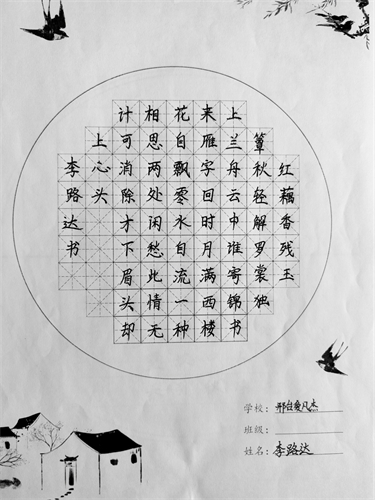 红藕香残玉
簟秋轻解罗裳独
上兰舟云中谁寄锦书
来雁字回时月满西楼
花自飘零水自流一种
相思两处闲愁此情无
计可消除才下眉头却
上心头
李路达书
学校：邢台爱凡杰
班级：
姓名：李路达